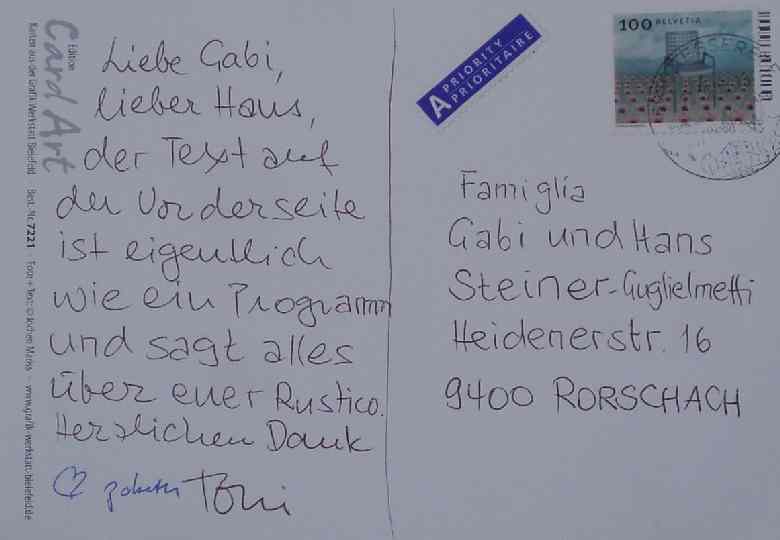 Liebe Gabi,
lieber Hans,
der Text auf
der Vorderseite
ist eigentlich
wie ein Programm
und sagt alles
über euer Rustico.
Herzlichen Dank
Toni
A PRIORITY
PRIORITAIRE
100 HELVETIA
Famiglia
Gabi und Hans
Steiner-Guglielmetti
Heidenerstr. 16
9400 RORSCHACH
Edition
Card Art
Karten aus der Grafik Werkstatt Bielefeld · Best.-Nr. 7221 · Foto + Text: © Jochen Mariss · www.grafik-werkstatt-bielefeld.de